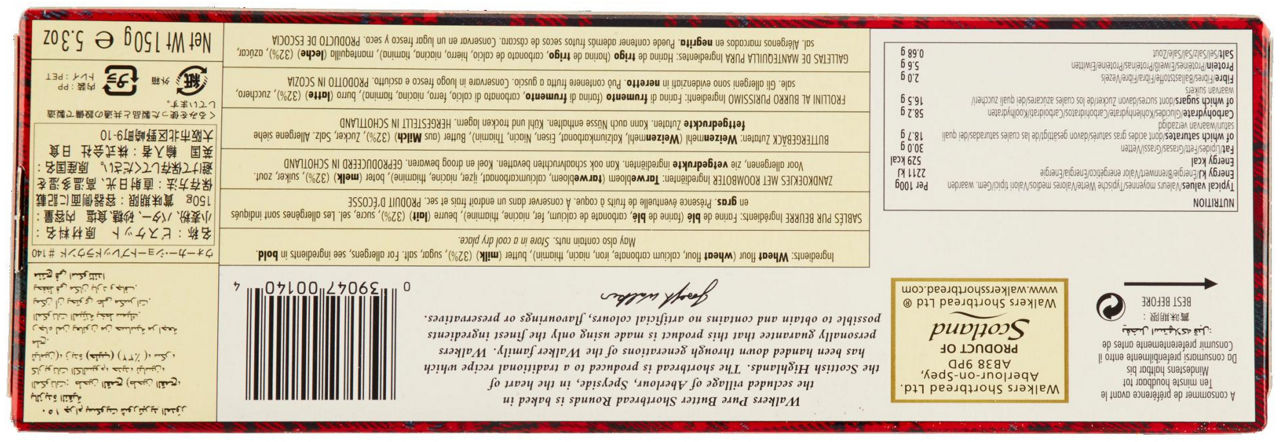 A consommer de préférence avant le
Ten minste houdbaar tot
Mindestens bis haltbar
Da consumarsi preferibilmente entro il
Consumir preferentemente antes de
يفضل استهلاكه قبل:
賞味期限：
BEST BEFORE
Walkers Shortbread Ltd.
Aberlour-on-Spey,
AB38 9PD
PRODUCT OF
Scotland
Walkers Shortbread Ltd ®
www.walkersshortbread.com
Walkers Pure Butter Shortbread Rounds is baked in
the secluded village of Aberlour, Speyside, in the heart of
the Scottish Highlands. The shortbread is produced to a traditional recipe which
has been handed down through generations of the Walker family. Walkers
personally guarantee that this product is made using only the finest ingredients
possible to obtain and contains no artificial colours, flavourings or preservatives.
Joseph Walker
0 39047 00140 4
NUTRITION
Typical values/Valeurs moyennes/Typische Werte/Valori medi/Valores medios/Valor típici/Gem. waarden Per 100g
Energy kJ/Energie/Brennwert/Valor energético/Energía/Energia 2211 kJ
Energy kcal 529 kcal
Fat/Lipides/Fett/Grasas/Grassi/Vetten 30.0 g
of which saturates/dont acides gras saturés/davon gesättigte/de las cuales saturadas/di quali
saturi/waarvan verzadigd 18.7 g
Carbohydrate/Glucides/Kohlenhydrate/Carbohidratos/Carboidrati/Koolhydraten 58.2 g
of which sugars/dont sucres/davon Zucker/de los cuales azúcares/dei quali zuccheri/
waarvan suikers 16.5 g
Fibre/Fibres/Ballaststoffe/Fibra/Fibre/Vezels 2.0 g
Protein/Protéines/Eiweiß/Proteínas/Proteine/Eiwitten 5.6 g
Salt/Sel/Salz/Sal/Sale/Zout 0.68 g
Ingredients: Wheat flour (wheat flour, calcium carbonate, iron, niacin, thiamin), butter (milk) (32%), sugar, salt. For allergens, see ingredients in bold.
May also contain nuts. Store in a cool dry place.
SABLÉS PUR BEURRE Ingrédients: Farine de blé (farine de blé, carbonate de calcium, fer, niacine, thiamine), beurre (lait) (32%), sucre, sel. Les allergènes sont indiqués
en gras. Présence éventuelle de fruits à coque. A conserver dans un endroit frais et sec. PRODUIT D'ÉCOSSE
ZANDKOEKJES MET ROOMBOTER Ingrediënten: Tarwebloem (tarwebloem, calciumcarbonaat, ijzer, niacine, thiamine), boter (melk) (32%), suiker, zout.
Voor allergenen, zie vetgedrukte ingrediënten. Kan ook schaalvruchten bevatten. Koel en droog bewaren. GEPRODUCEERD IN SCHOTLAND
BUTTERGEBÄCK Zutaten: Weizenmehl (Weizenmehl, Kalziumkarbonat, Eisen, Niacin, Thiamin), Butter (aus Milch) (32%), Zucker, Salz. Allergene siehe
fettgedruckte Zutaten. Kann auch Nüsse enthalten. Kühl und trocken lagern. HERGESTELLT IN SCHOTTLAND
FROLLINI AL BURRO PURISSIMO Ingredienti: Farina di frumento (farina di frumento, carbonato di calcio, ferro, niacina, tiamina), burro (latte) (32%), zucchero,
sale. Gli allergeni sono evidenziati in neretto. Può contenere frutta a guscio. Conservare in luogo fresco e asciutto. PRODOTTO IN SCOZIA
GALLETAS DE MANTEQUILLA PURA Ingredientes: Harina de trigo (harina de trigo, carbonato de calcio, hierro, niacina, tiamina), mantequilla (leche) (32%), azúcar,
sal. Alérgenos marcados en negrita. Puede contener además frutos secos de cáscara. Conservar en un lugar fresco y seco. PRODUCTO DE ESCOCIA
ウォーカー・ショートブレッドラウンド #140
名称：ビスケット 原材料名：
小麦粉、バター、砂糖、食塩 内容量：
150g 賞味期限：容器側面に記載
保存方法：直射日光、高温多湿を
避けて保存してください。原産国名：
英国 輸入者：株式会社 日食
大阪市北区野崎町9-10
くるみを使った製品と共通の設備で製造
しています。
紙
外箱
プラ
内装：PP
トレイ：PET
Net Wt 150g e 5.3 oz